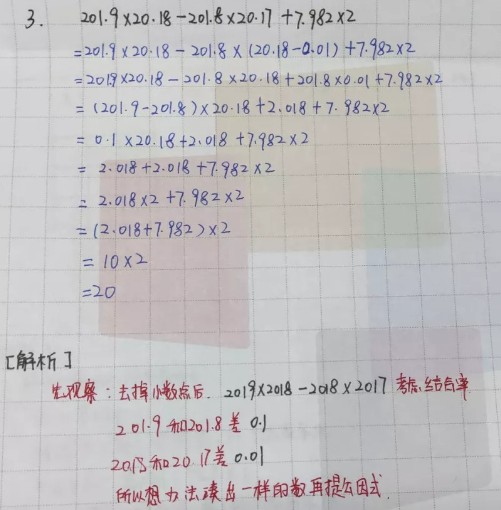 3. 201.9×20.18-201.8×20.17+7.982×2
=201.9×20.18-201.8×(20.18-0.01)+7.982×2
=201.9×20.18-201.8×20.18+201.8×0.01+7.982×2
=(201.9-201.8)×20.18+2.018+7.982×2
=0.1×20.18+2.018+7.982×2
=2.018+2.018+7.982×2
=2.018×2+7.982×2
=(2.018+7.982)×2
=10×2
=20
[解析]
先观察:去掉小数点后. 2019×2018-2018×2017 考虑结合率
201.9和201.8差0.1
20.18和20.17差0.01
所以想办法凑出一样的数再提公因式.